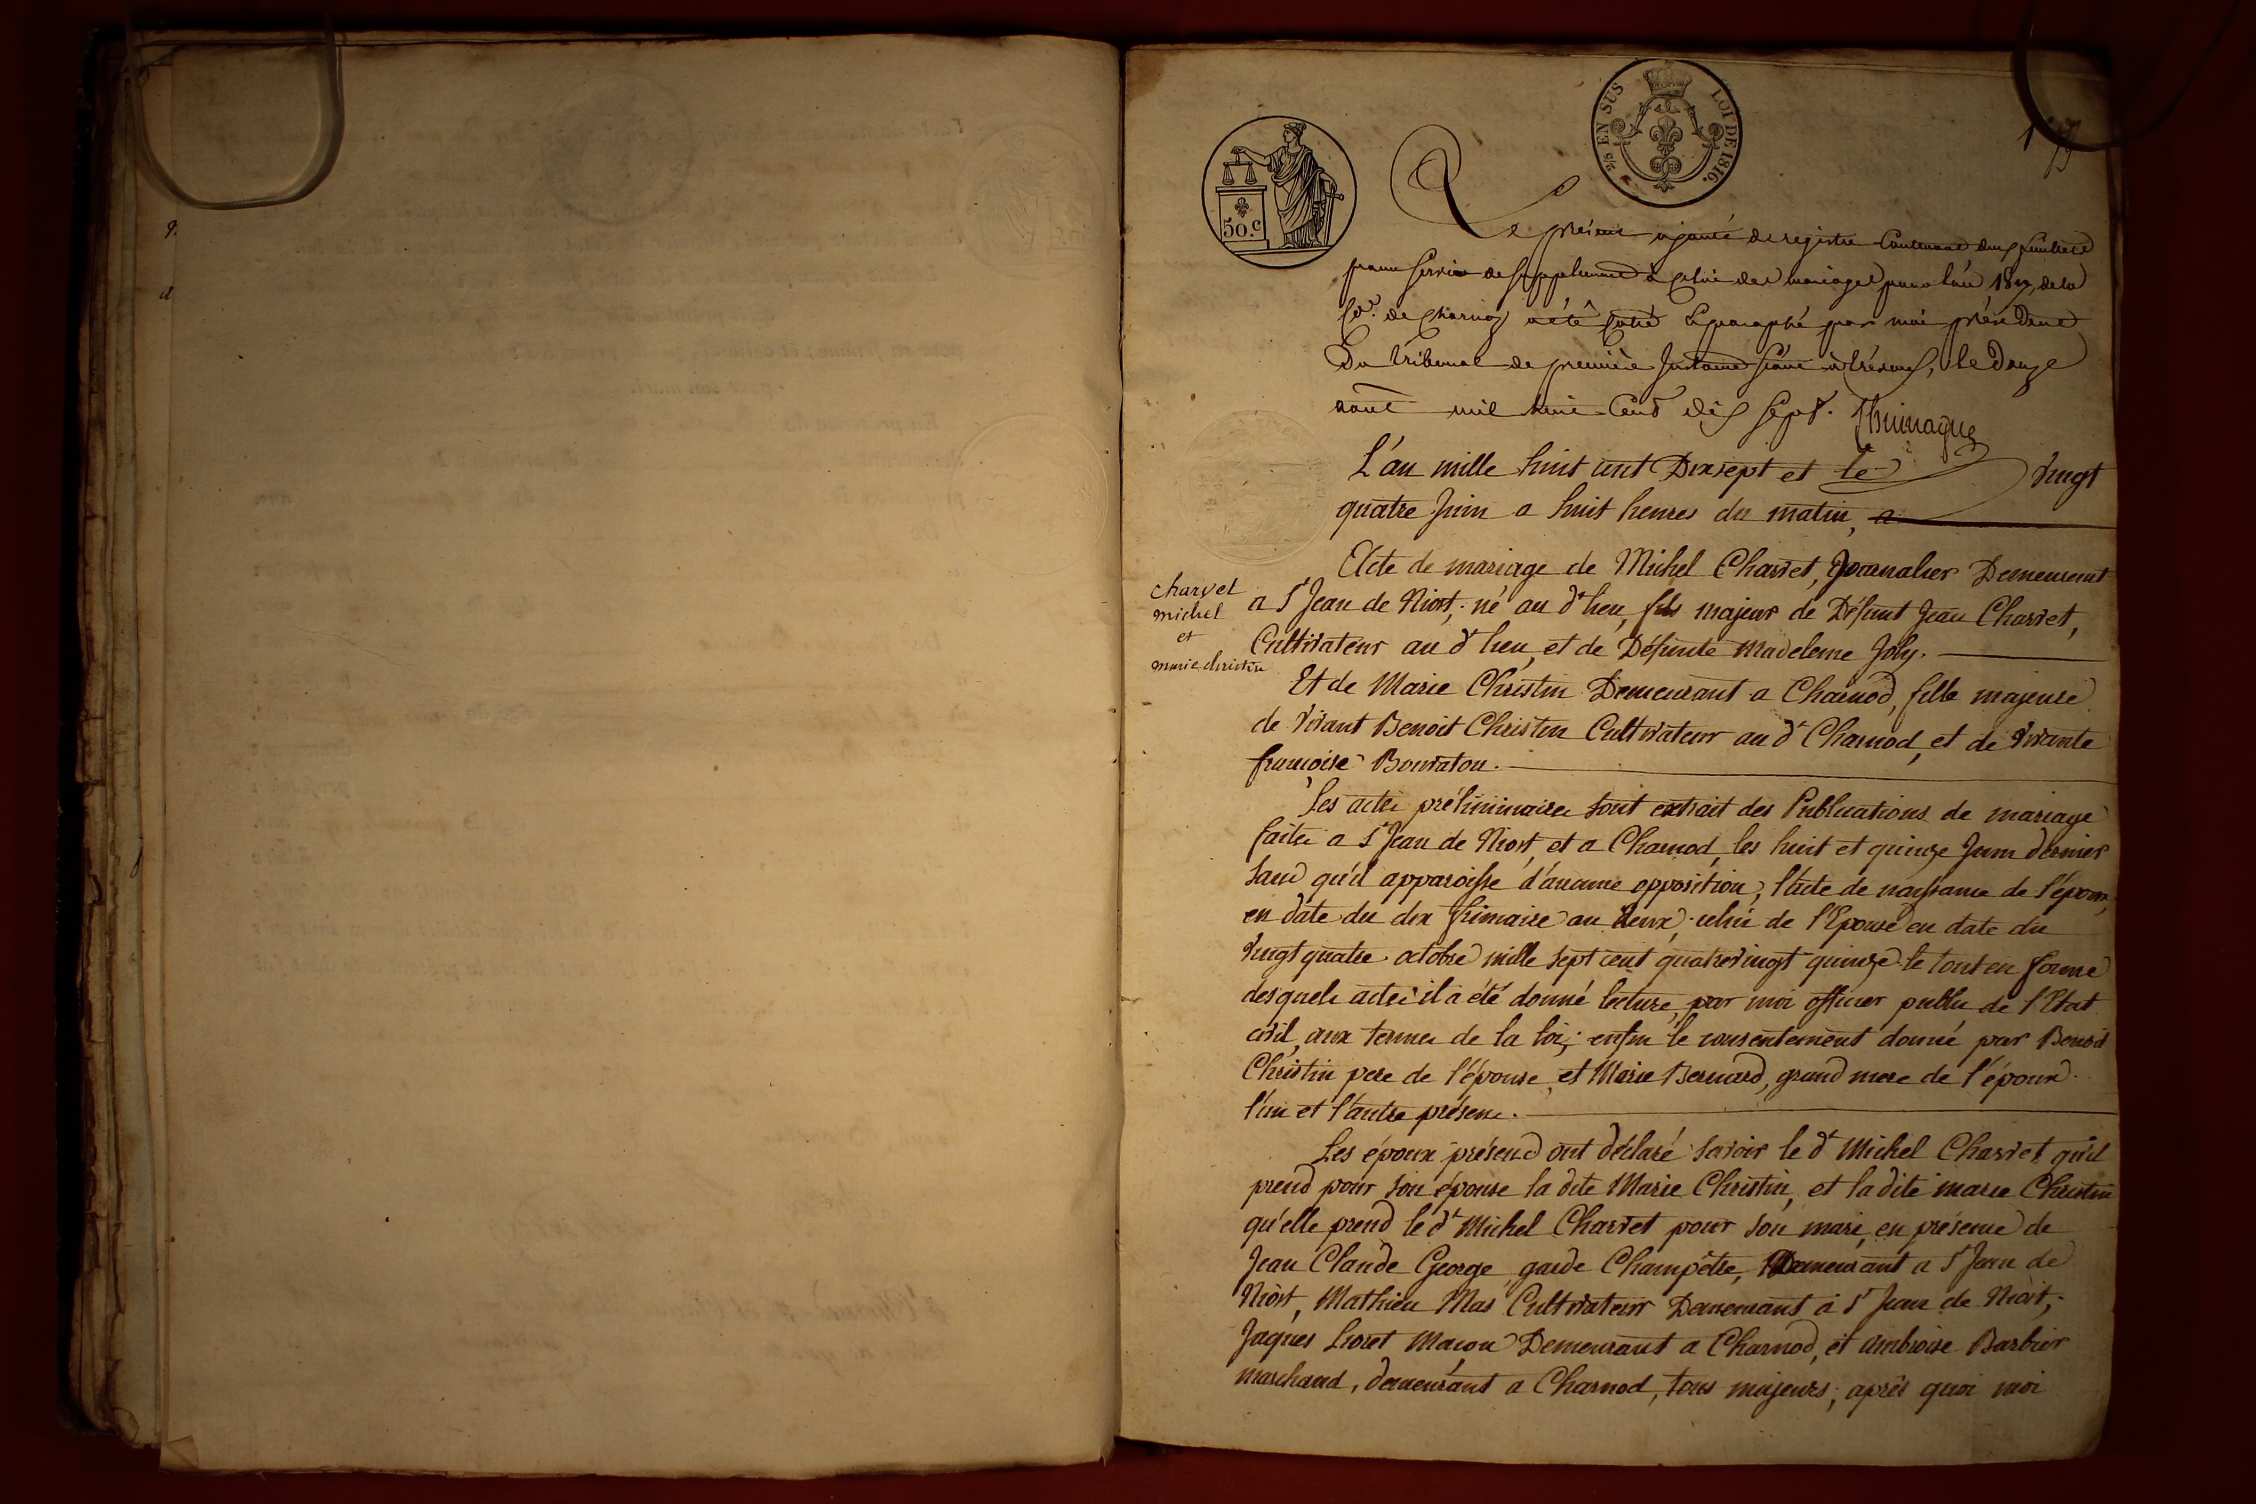 EN SUS
LOI DE 1816.
50.c
Le présent ajouté de registre Contenant deux feuillets
pour servir de supplement à celui des mariages pour l'an 1817, de la
Co.e de Charnoz a été Coté & paraphé par moi président
Du tribunal de première Instance séant à Trévoux, le Douze
août mil huit Cent dix sept.
L'an mille huit cent Dixsept et le vingt
quatre Juin a huit heures du matin, a
Acte de mariage de Michel Charvet, Journalier Demeurant
a St Jean de Niost, né au dt lieu, fils majeur de Défunt Jean Charvet,
Cultivateur au dt lieu, et de Défunte Madeleine Joly.
charvet
michel
et
marie christin
Et de Marie Christin Demeurant a Charnod, fille majeure
de vivant Benoit Christin Cultivateur au dt Charnod, et de vivante
françoise Bouvatou.
Les actes préliminaires sont extrait des Publications de mariage
faites a St Jean de Niost, et a Charnod, les huit et quinze Juin dernier
sans qu'il apparoisse d'aucune opposition, l'acte de naissance de l'époux,
en date du dix frimaire an deux, celui de l'Epouse en date du
vingt quatre octobre mille sept cent quatrevingt quinze le tout en forme
desquels actes il a été donné lecture, par moi officier public de l'Etat
civil, aux termes de la loi; enfin le consentement donné par Benoit
Christin pere de l'épouse, et Marie Bernard, grand mere de l'époux
l'un et l'autre présens.
Les époux présens ont déclaré savoir le dt Michel Charvet qu'il
prend pour son épouse la dite Marie Christin, et la dite marie Christin
qu'elle prend le dt Michel Charvet pour son mari, en présence de
Jean Claude George, garde Champêtre, Demeurant a St Jean de
Niost, Mathieu Mas Cultivateur Demeurant à St Jean de Niost,
Jaques Lioret Maçon Demeurant a Charnod, et ambroise Barbier
marchand, demeurant a Charnod, tous majeurs; après quoi moi